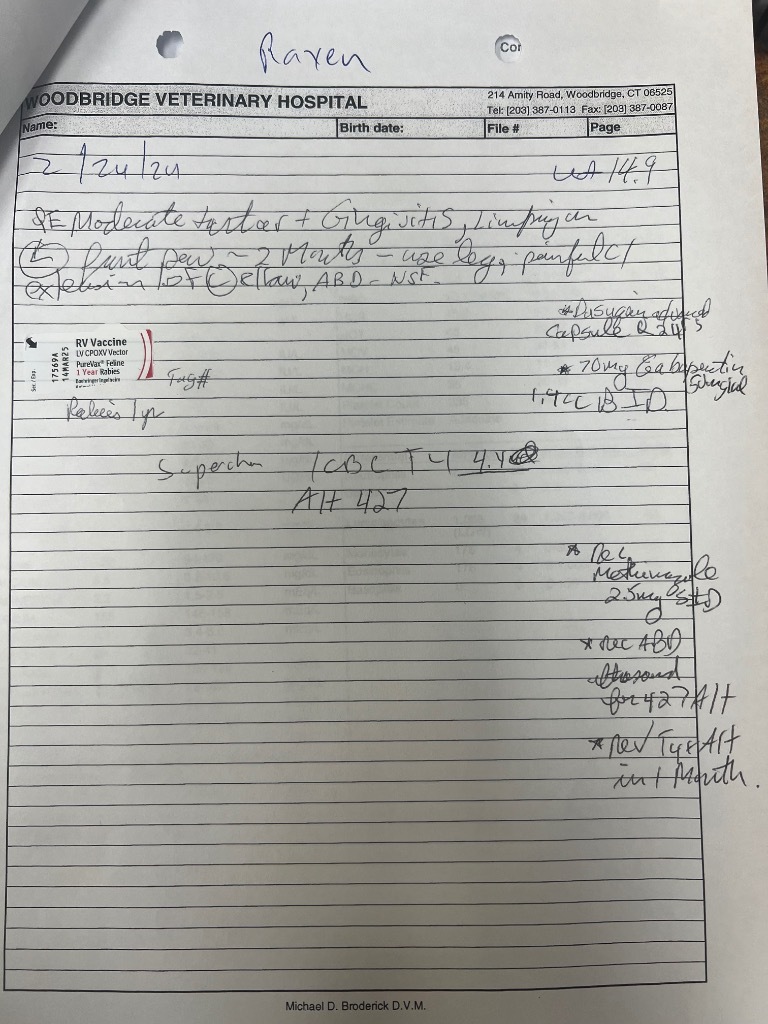 Raven
Cor
WOODBRIDGE VETERINARY HOSPITAL
214 Amity Road, Woodbridge, CT 06525
Tel: [203] 387-0113 Fax: [203] 387-0087
Name: Birth date: File # Page
2/24/24 wt 14.9
PE Moderate tartar + Gingivitis, Limping on
(L) front paw ~ 2 Months - use leg, painful c/
extension of (L) elbow, ABD - NSF.
* Dasuquin advanced
Capsule Q 24 hrs
RV Vaccine
LV CPOXV Vector
PureVax® Feline
1 Year Rabies
Boehringer Ingelheim
Ser./Exp. 17569A
14MAR25
Tag#
* 70mg Gabapentin
1.4cc BID
Rabies 1yr
Superchem /CBC T4 4.4
Alt 427
* Rec
Methimazole
2.5mg SID
* Rec ABD
ultrasound
for 427 Alt
* Rev T4 & Alt
in 1 Month.
Michael D. Broderick D.V.M.